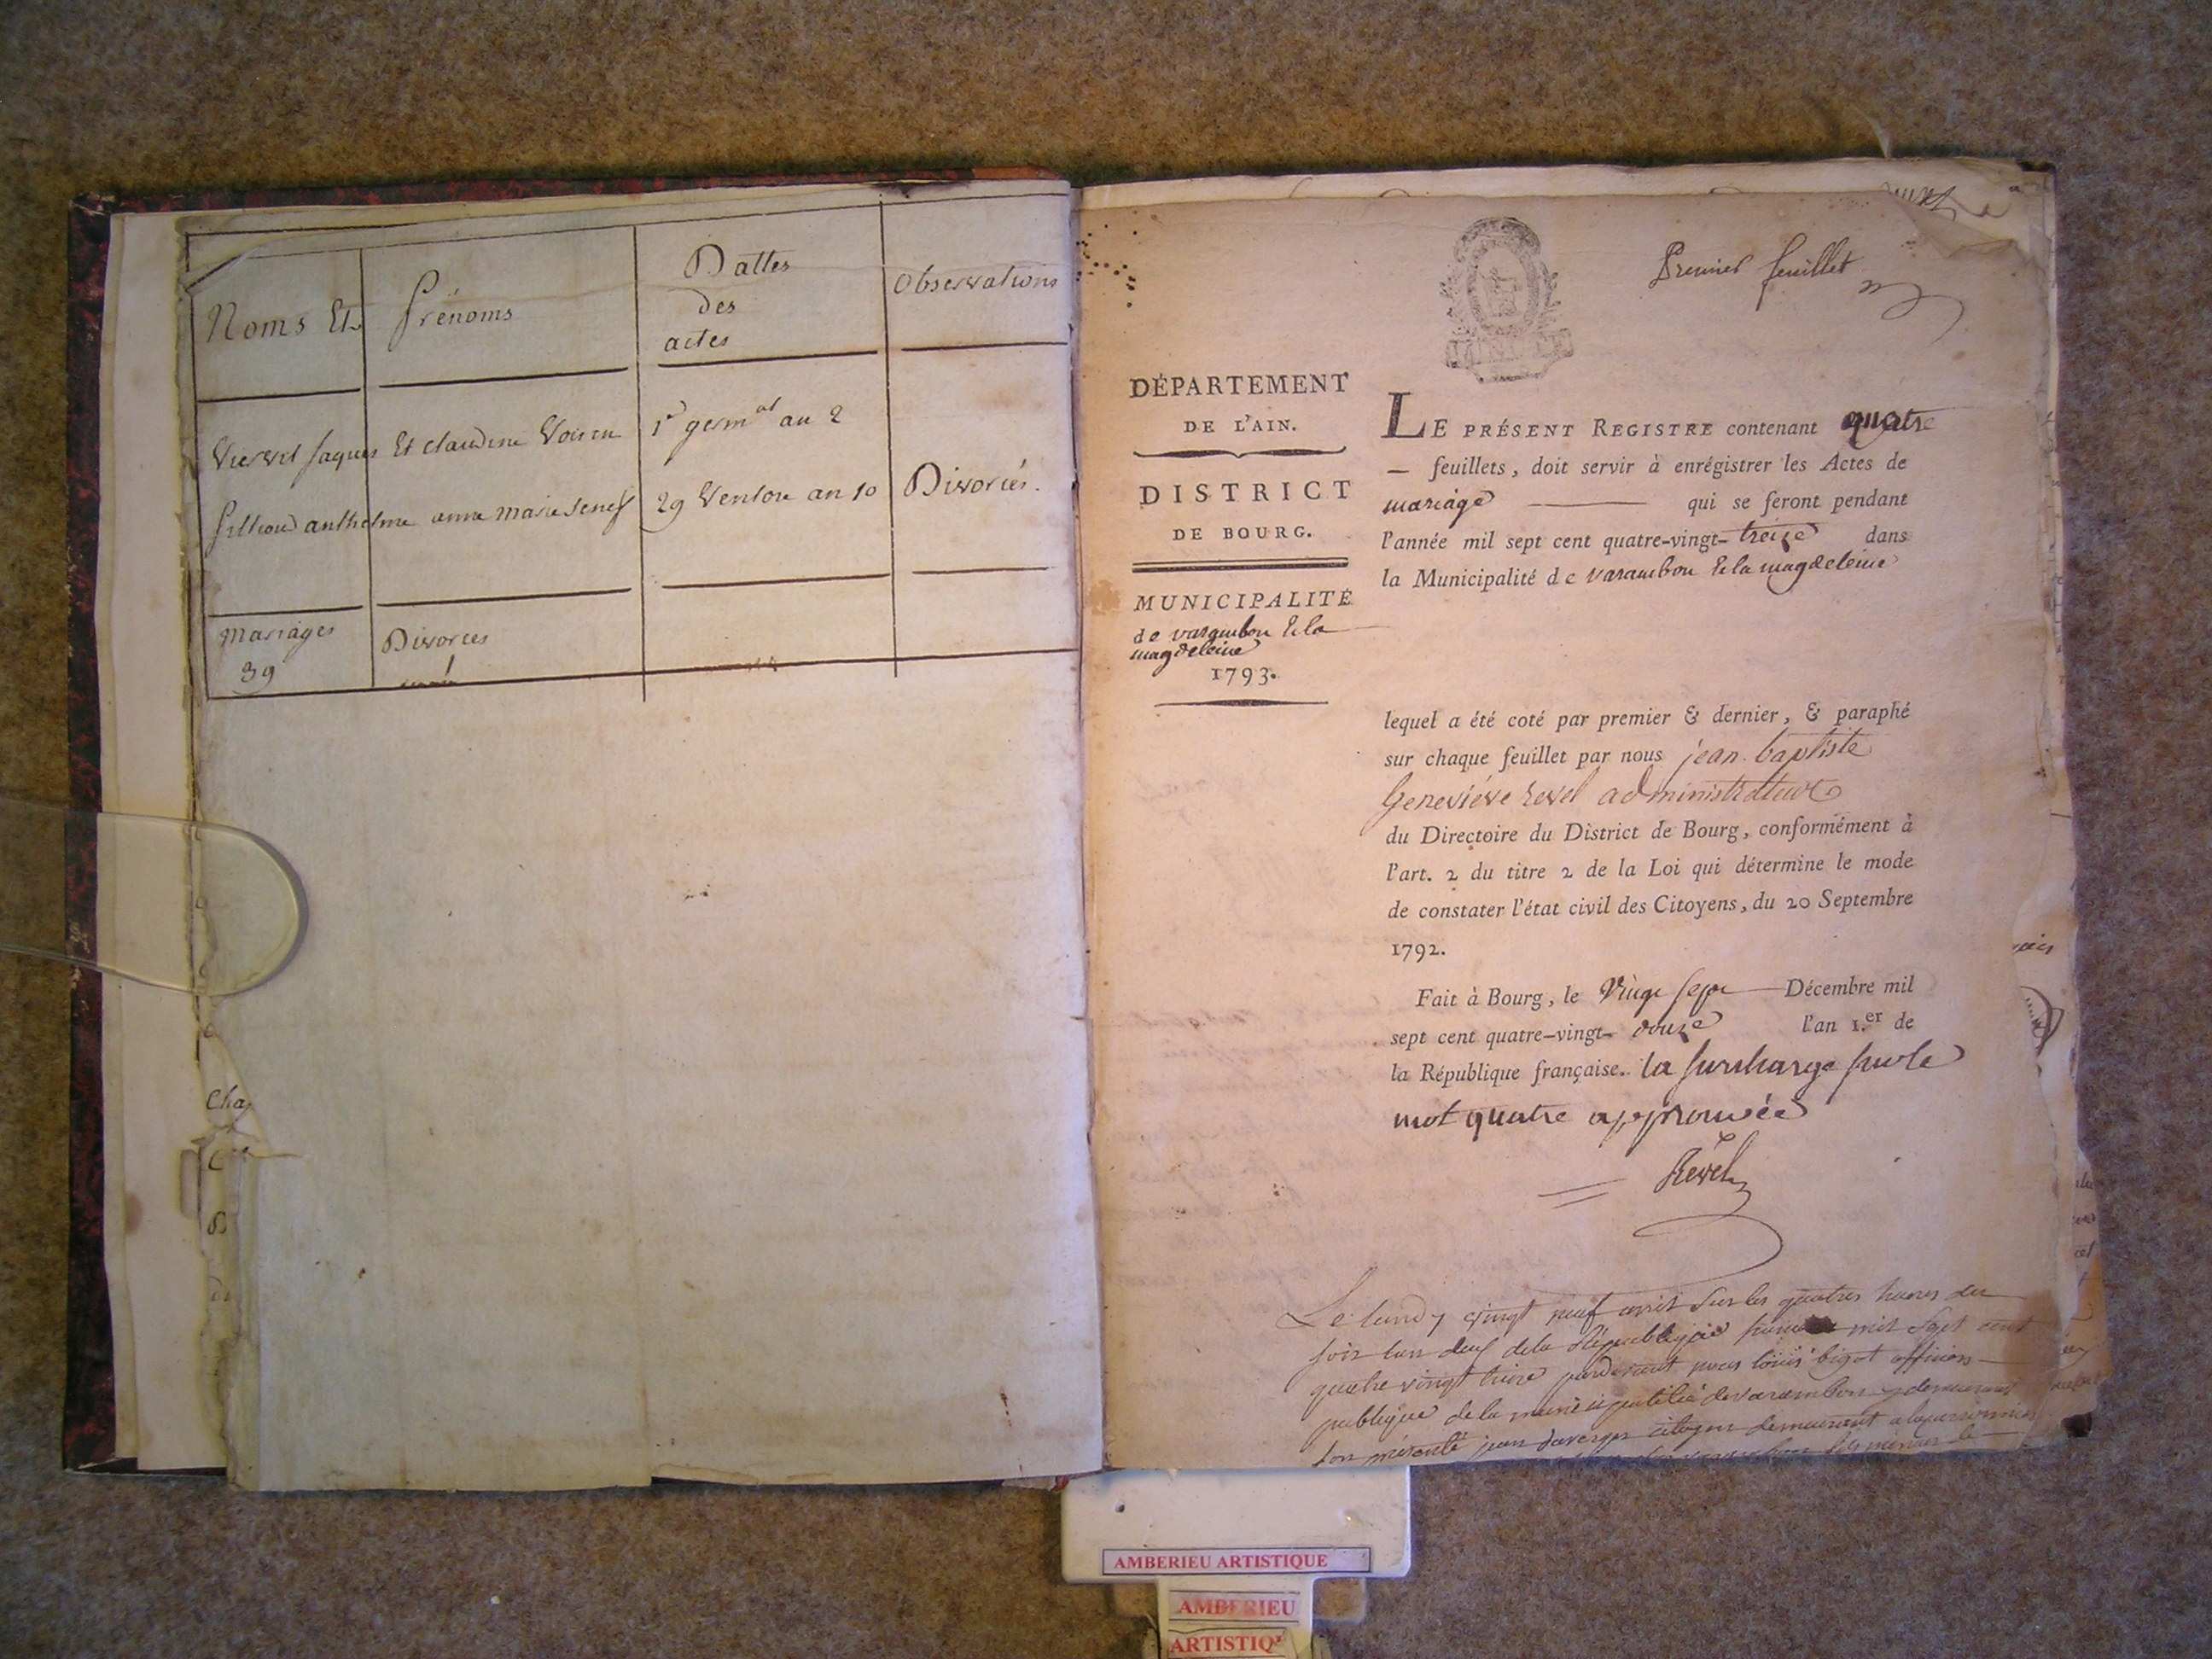 Noms Et Prénoms
Dattes
des
actes
Observations
Jaques Et claudine Voisin 1er germal an 2
anthelme anne marie 29 Ventose an 10 Divorcés.
mariages Divorces
39 1
Cha
Premier feuillet
DÉPARTEMENT
DE L'AIN.
DISTRICT
DE BOURG.
MUNICIPALITÉ
de varambon & la
magdeleine
1793.
LE PRÉSENT REGISTRE contenant quatre
— feuillets, doit servir à enrégistrer les Actes de
mariage — qui se feront pendant
l'année mil sept cent quatre-vingt-treize dans
la Municipalité de varambon & la magdeleine
lequel a été coté par premier & dernier, & paraphé
sur chaque feuillet par nous jean baptiste
Geneviéve revel administrateur
du Directoire du District de Bourg, conformément à
l'art. 2 du titre 2 de la Loi qui détermine le mode
de constater l'état civil des Citoyens, du 20 Septembre
1792.
Fait à Bourg, le Vingt sept Décembre mil
sept cent quatre-vingt-douze l'an 1.er de
la République française. la surcharge sur le
mot quatre approuvée
Revel
Le lundy vingt neuf avril sur les quatres heures du
soir lan deux de la République mil sept cent
quatre vingt treize pardevant nous louis bigot officiers
publique de la municipalité de varambon y demeurant
son présenté jean citoyen demeurant
AMBERIEU ARTISTIQUE
AMBERIEU
ARTISTIQ